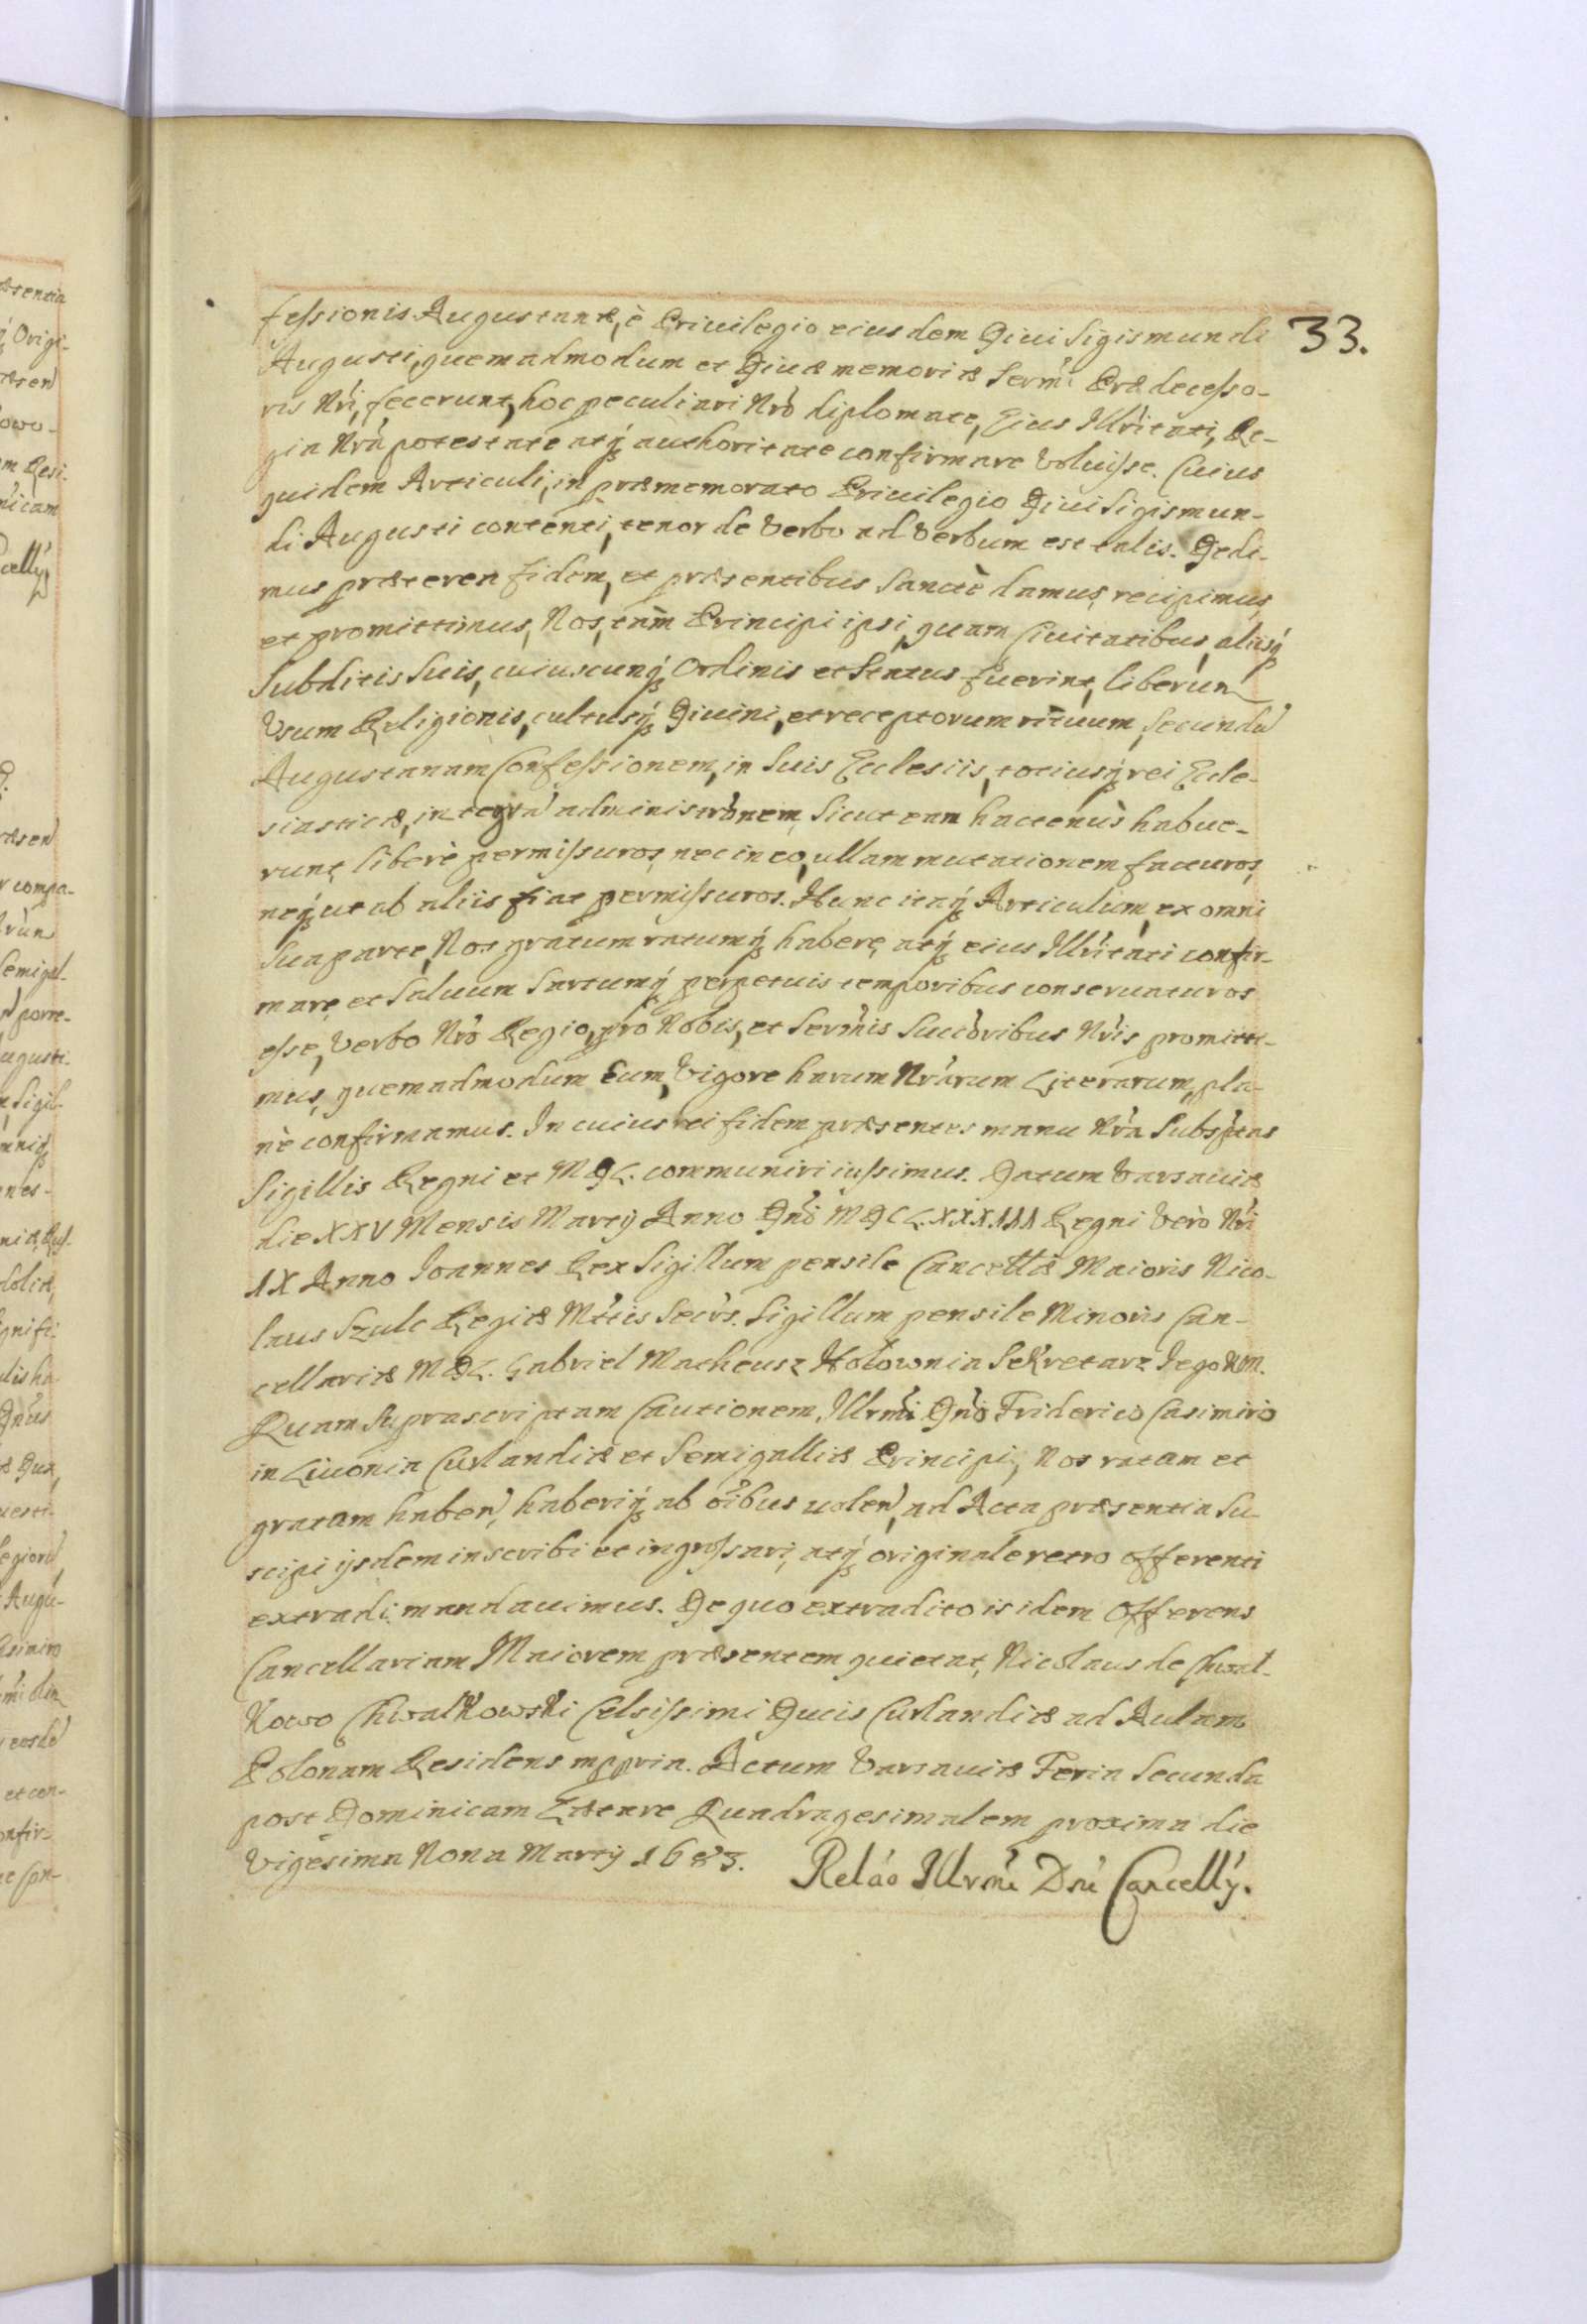 33.
fessionis Augustanæ, è Priuilegio eiusdem Diui Sigismundi
Augusti, quemadmodum et Diuæ memoriæ Sermi Prædecesso-
ris Nri, fecerunt, hoc peculiari Nro diplomate, Eius Illritati, Re-
gia Nra potestate atq authoritate confirmare voluisse. Cuius
quidem Articuli, in præmemorato Priuilegio Diui Sigismun-
di Augusti contenti, tenor de verbo ad verbum est talis. Dedi-
mus præterea fidem, et præsentibus Sanctè damus, recipimus,
et promittimus, Nos, tam Principi ipsi, quam Ciuitatibus, alijsq
Subditis Suis, cuiuscunq Ordinis et Status fuerint, liberum
Vsum Religionis, cultusq Diuini, et receptorum rituum, Secundu
Augustanam Confessionem, in Suis Ecclesiis, totiusq rei Eccle-
siasticæ, integra administronem, Sicut eam hactenùs habue-
runt, liberè permissuros, nec in eo, ullam mutationem facturos,
neq ut ab aliis fiat permissuros. Hunc itaq Articulum, ex omni
Sua parte, Nos gratum ratumq habere, atq eius Illritati confir-
mare, et Saluum Sartumq perpetuis temporibus conseruaturos
esse, Verbo Nro Regio, pro Nobis, et Sermis Succoribus Nris promitti-
mus, quemadmodum Eum, Vigore harum Nrarum Literarum, pla-
nè confirmamus. In cuius rei fidem præsentes manu Nra Subsptas
Sigillis Regni et MDL. communiri iussimus. Datum Varsauiæ
die XXV Mensis Martij Anno Dni MDCLXXXIII Regni Verò Nri
IX Anno Joannes Rex Sigillum pensile Cancellæ Maioris Nico-
laus Szulc Regiæ Mttis Secrs. Sigillum pensile Minoris Can-
cellariæ MDL. Gabriel Matheusz Hołownia Sekretarz Jego KM.
Quam Suprascriptam Cautionem, Illrmi Dno Friderico Casimiro
in Liuonia Curlandiæ et Semigalliæ Principi, Nos ratam et
gratam haben, haberiq ab oibus uolen, ad Acta præsentia Su-
scipi ijsdem inscribi et ingrossari, atq originale retro offerenti
extradi mandauimus. De quo extradito is idem Offerens
Cancellariam Maiorem præsentem quietat, Nicolaus de Chwał-
kowo Chwałkowski Celsissimi Ducis Curlandiæ ad Aulam
Polonam Residens mppria. Actum Varsauiæ Feria Secunda
post Dominicam Lætare Quadragesimalem proxima die
Vigesima Nona Martij 1683.
Relao Illrmi Dni Cancellij.